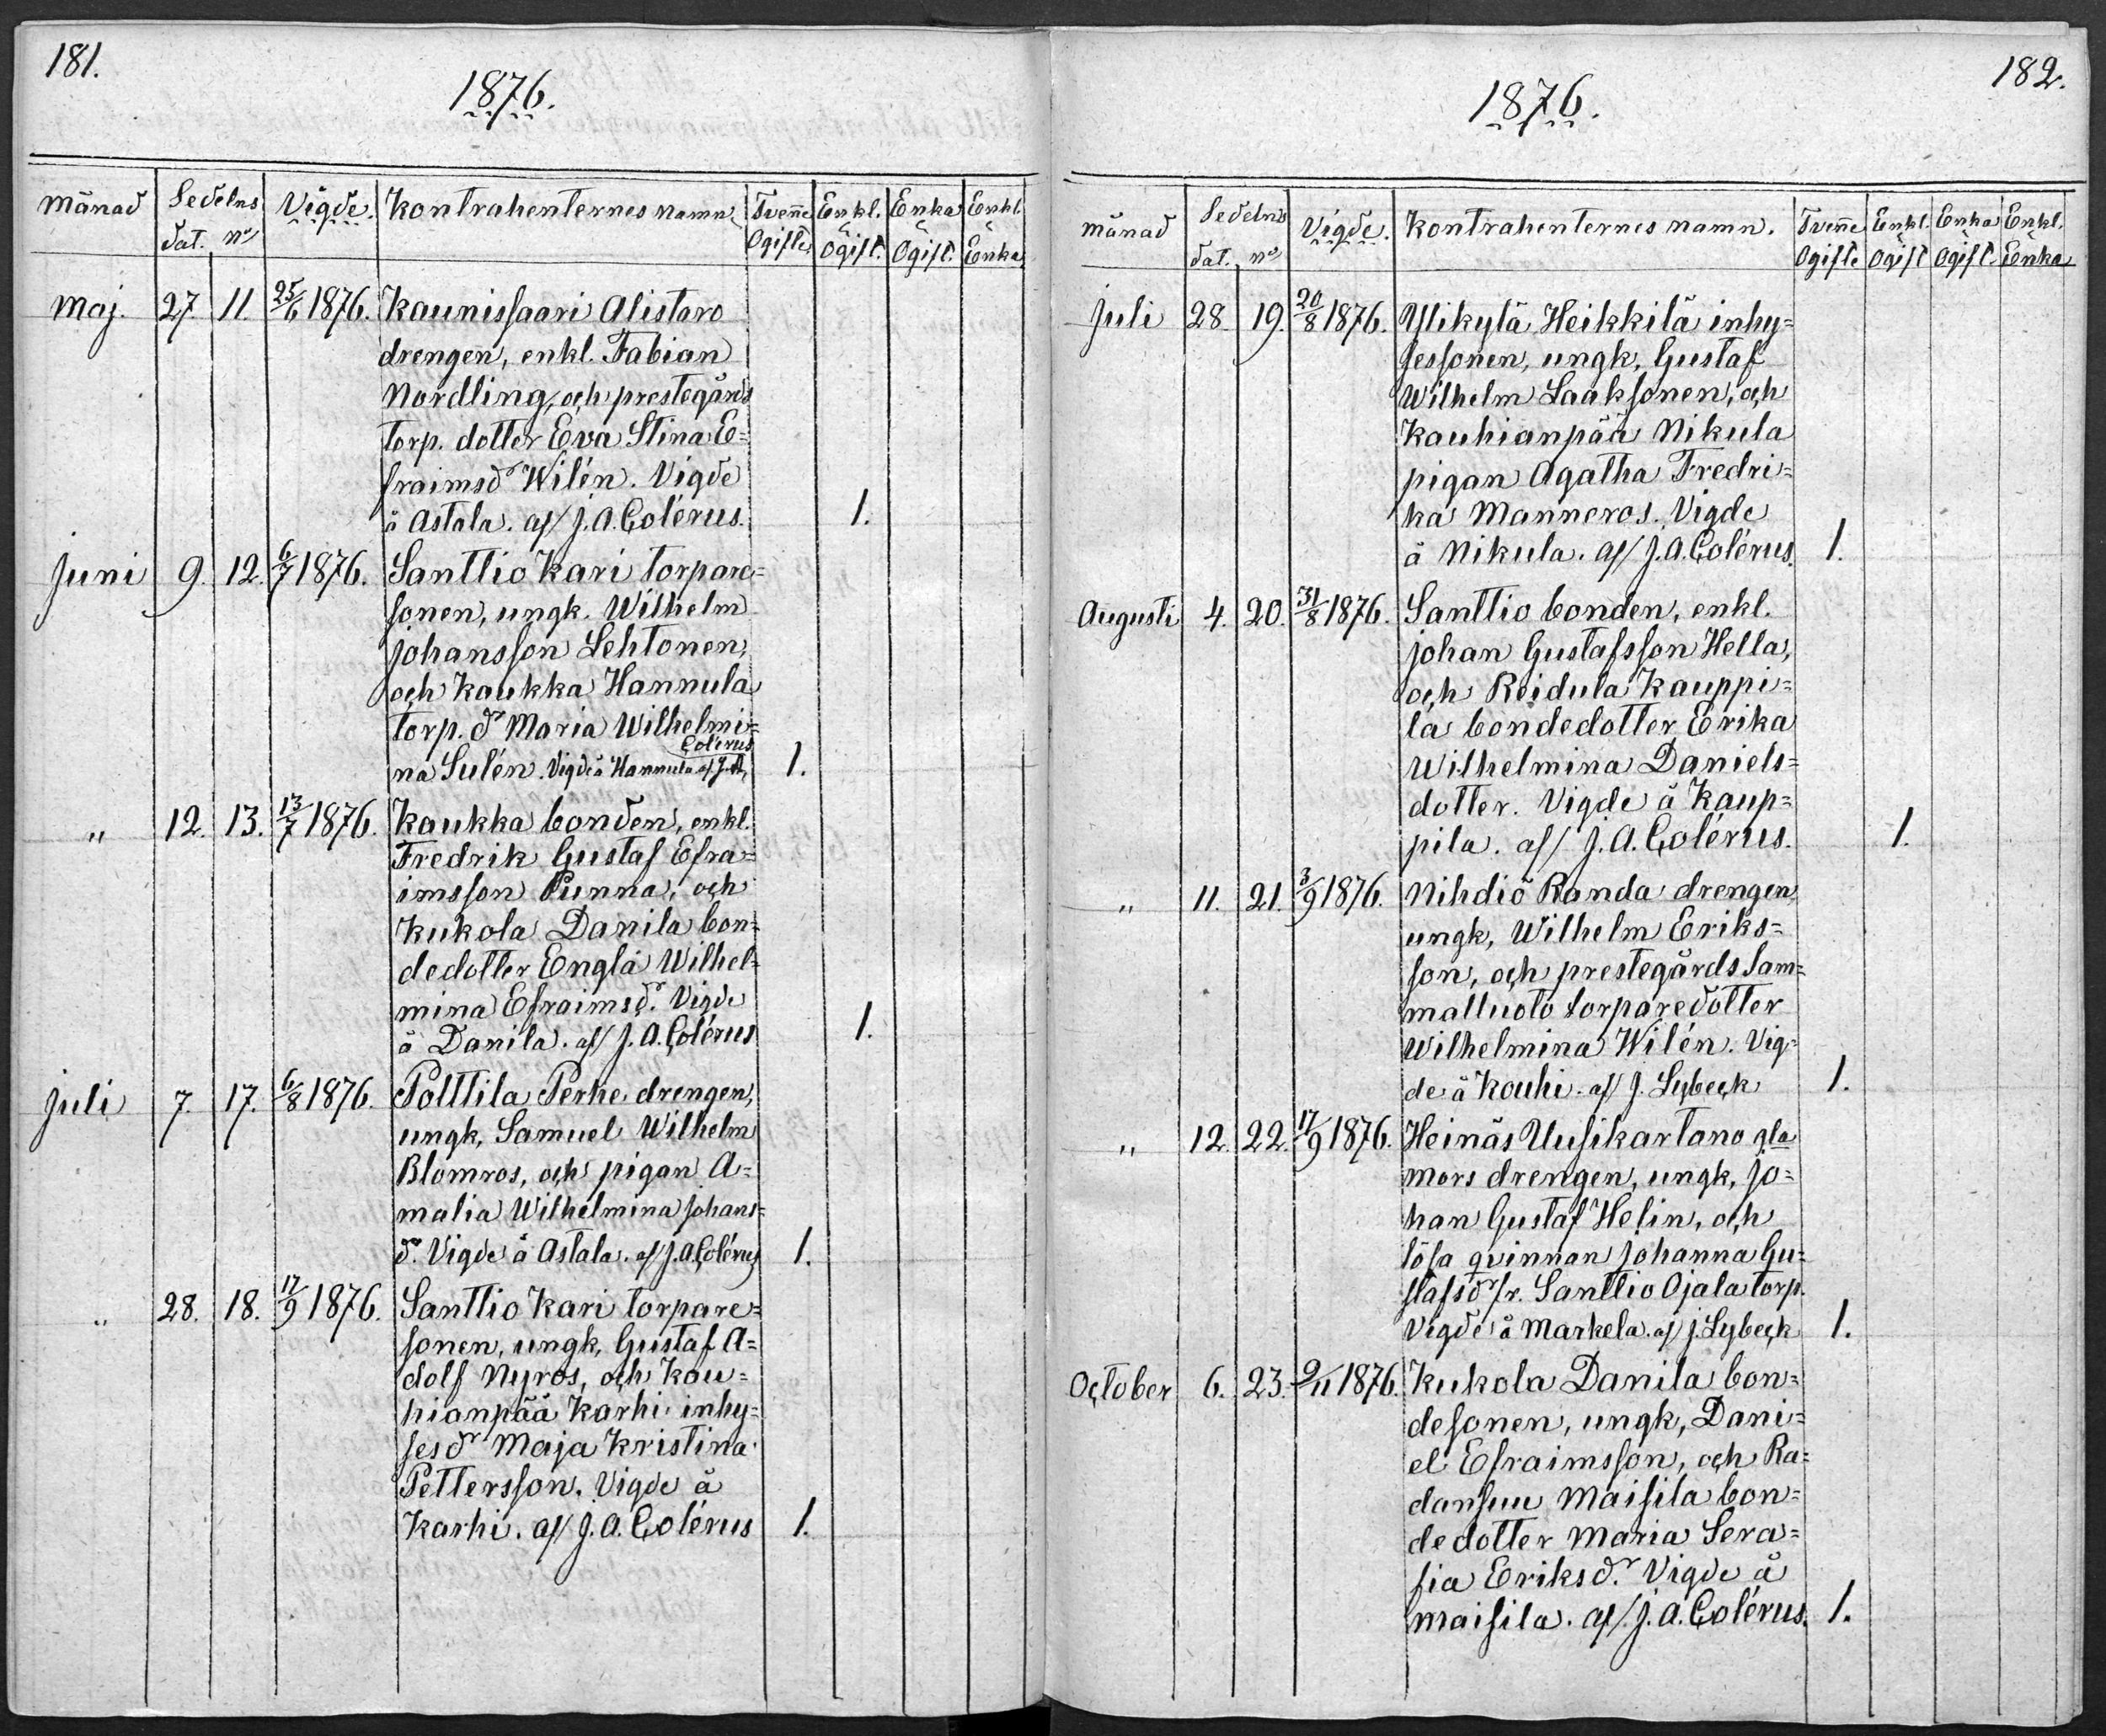 181.
1876.
Månad Sedelns Vigde. Kontrahenternes namn. Tvenne Enkl. Enka Enkl.
dat. No Ogifte Ogift. Ogift. Enka
Maj. 27. 11. 25/6 1876. Kaunissaari Alistaro
drengen, enkl. Fabian
Nordling, och prestegårds
torp. dotter Eva Stina E=
fraimsdr Wilén. Vigde
å Astala. af/ J. A. Colérus. 1.
Juni 9. 12. 6/7 1876. Santtio Kari torpare=
sonen, ungk. Wilhelm
Johansson Lehtonen,
och Kaukka Hannula
torp. dr Maria Wilhelmi=
Colérus
na Sulén. Vigde å Hannula af J. A. 1.
" 12. 13. 13/7 1876. Kaukka bonden, enkl.
Fredrik Gustaf Efra=
imsson Punna, och
Kukola Danila bon=
dedotter Engla Wilhel=
mina Efraimsdr. Vigde
å Danila. af/ J. A. Colérus 1.
Juli 7. 17. 6/8 1876. Polttila Perhe drengen,
ungk, Samuel Wilhelm
Blomros, och pigan A=
malia Wilhelmina Johans=
dr. Vigde å Astala. af/ J. A. Colérus 1.
" 28. 18. 17/9 1876. Santtio Kari torpare=
sonen, ungk, Gustaf A=
dolf Nyros, och Kau=
hianpää Karhi inhy=
sesdr Maja Kristina
Pettersson. Vigde å
Karhi. af/ J. A. Colérus 1.
182.
1876.
Månad Sedelns Vigde. Kontrahenternes namn. Tvenne Enkl. Enka Enkl.
dat. No Ogifte Ogift Ogift. Enka
Juli 28. 19. 20/8 1876. Ylikylä Heikkilä inhy=
sessonen, ungk, Gustaf
Wilhelm Laaksonen, och
Kauhianpää Nikula
pigan Agatha Fredri=
ka Manneros. Vigde
å Nikula. af/ J. A. Colérus. 1.
Augusti 4. 20. 31/8 1876. Santtio bonden, enkl.
Johan Gustafsson Hella,
och Roidula Kauppi=
la bondedotter Erika
Wilhelmina Daniels=
dotter. Vigde å Kaup=
pila. af/ J. A. Colérus. 1.
" 11. 21. 3/9 1876. Nihdiö Randa drengen,
ungk, Wilhelm Eriks=
son, och prestegårds Sam=
malluoto torparedotter
Wilhelmina Wilén. Vig=
de å Kouhi. af/ J. Lybeck 1.
" 12. 22. 17/9 1876. Heinäs Uusikartano gla
mors drengen, ungk, Jo=
han Gustaf Helin, och
lösa qvinnan Johanna Gu=
stafsdr fr. Santtio Ojala torp.
Vigde å Markela. af J. Lybeck 1.
October 6. 23. 9/11 1876. Kukola Danila bon=
desonen, ungk, Dani=
el Efraimsson, och Ra=
dansuu Maisila bon=
dedotter Maria Sera=
fia Eriksdr. Vigde å
Maisila. af/. J. A. Colérus. 1.